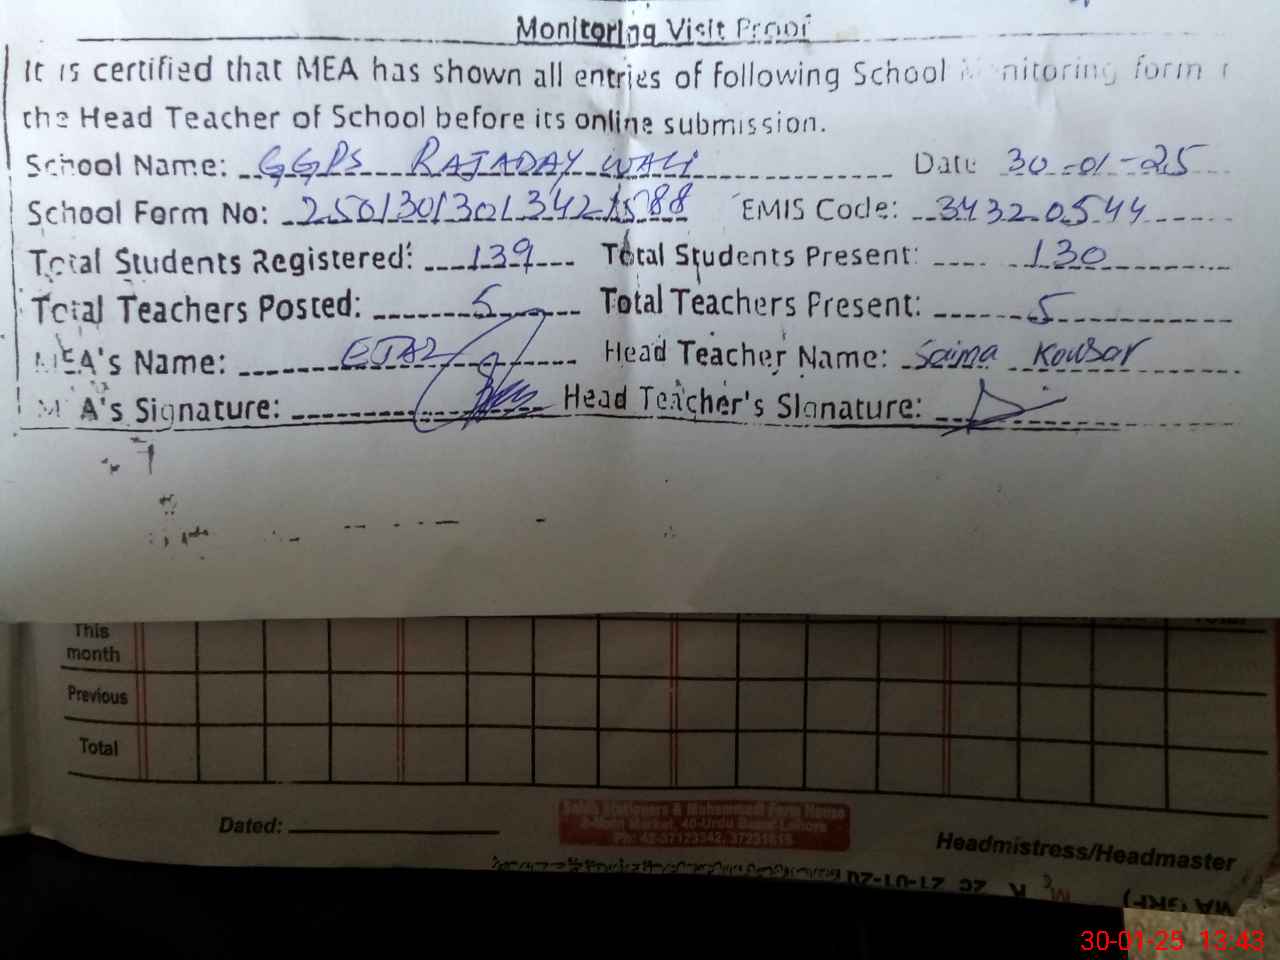 Monitoring Visit Proof
It is certified that MEA has shown all entries of following School Monitoring form
the Head Teacher of School before its online submission.
School Name: GGPS RAJADAY WALI Date 30-01-25
School Form No: EMIS Code: 34320544
Total Students Registered: 139 Total Students Present: 130
Total Teachers Posted: 5 Total Teachers Present: 5
MEA's Name: EJAZ Head Teacher Name: Saima Kousar
MEA's Signature: Head Teacher's Signature:
Total
This
month
Previous
Total
Dated:
Headmistress/Headmaster
30-01-25 13:43